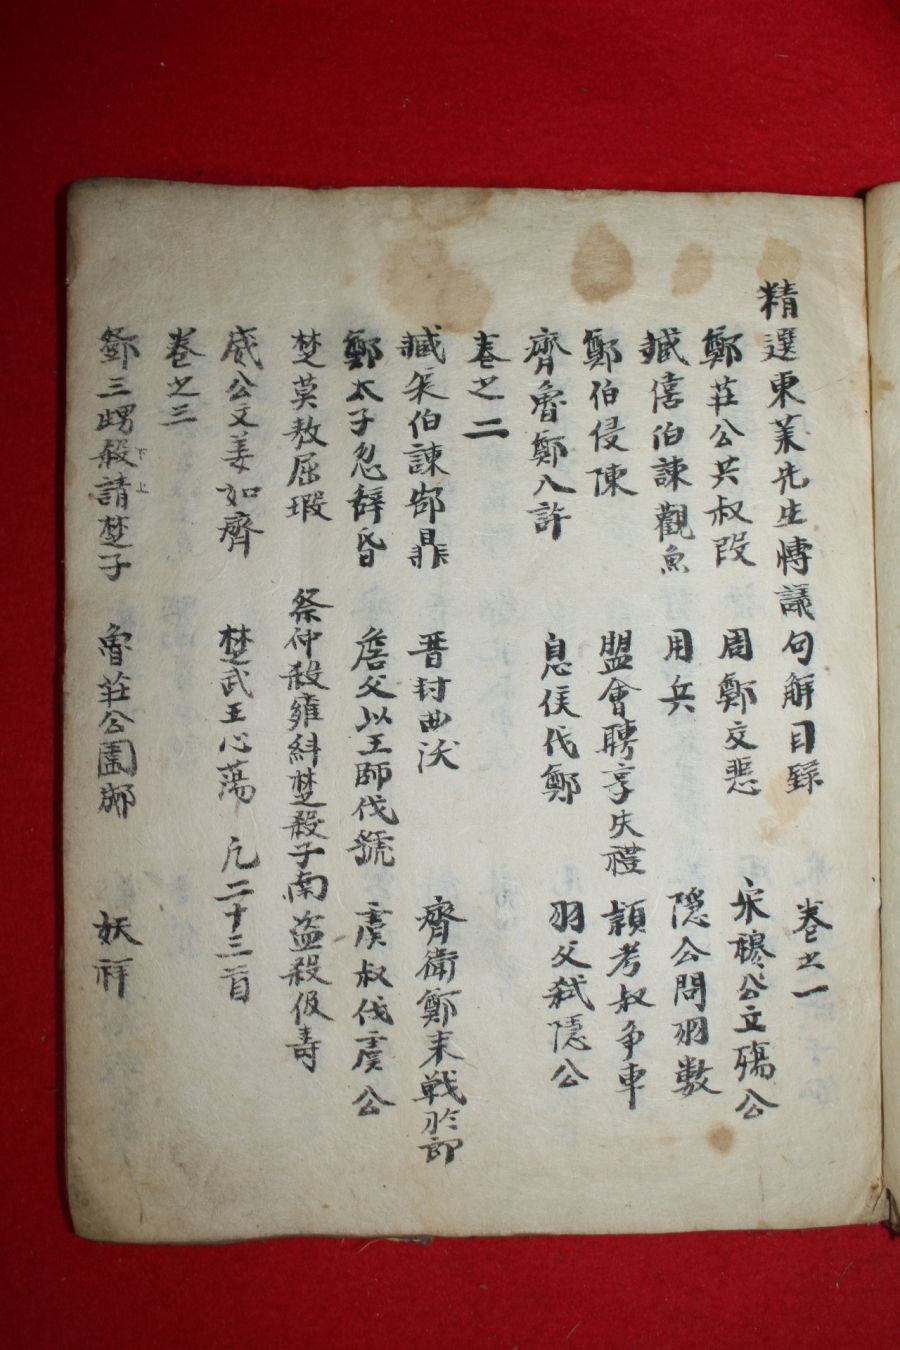 精選東萊先生博議句解目録 卷之一
鄭莊公共叔段 周鄭交惡 宋穆公立殤公
臧僖伯諫觀魚 用兵 隱公問羽數
鄭伯侵陳 盟會聘享失禮 穎考叔争車
齊魯鄭入許 息侯伐鄭 羽父弑隱公
卷之二
臧哀伯諫郜鼎 晋封曲沃 齊衛鄭来戰於郎
鄭太子忽辞昏 詹父以王師伐虢 虞叔伐虞公
楚莫敖屈瑕 祭仲殺雍糾楚殺子南盗殺伋壽
桓公文姜如齊 楚武王心蕩 凢二十三首
卷之三
鄧三甥殺請楚子 魯莊公圍郕 妖祥
下 上